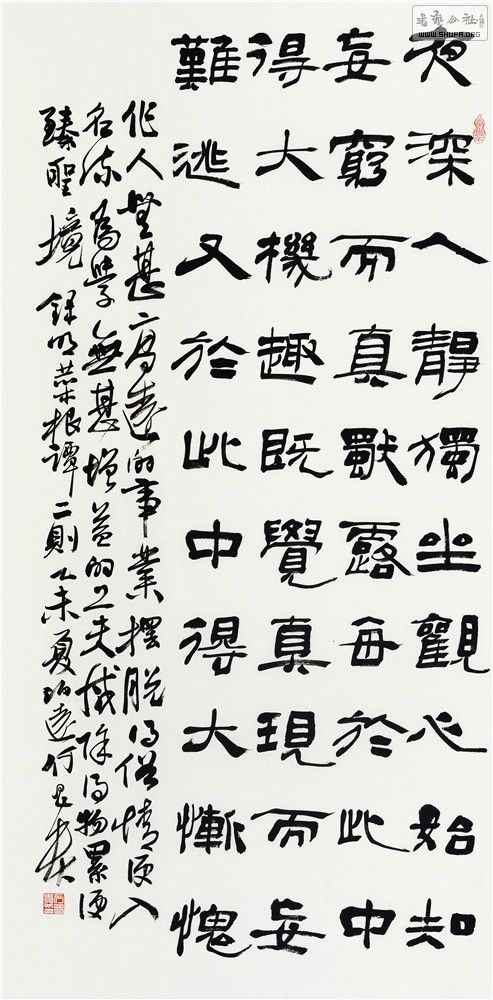 夜深人靜獨坐觀心始知
妄窮而真獸露每於此中
得大機趣既覺真現而妄
難逃又於此中得大慚愧
作人無甚高遠的事業擺脫得俗情便入
名流為學無甚增益的工夫減除得物累便
臻聖境 錄明菜根譚二則乙未夏
書藝公社
WWW.SHUFA.ORG